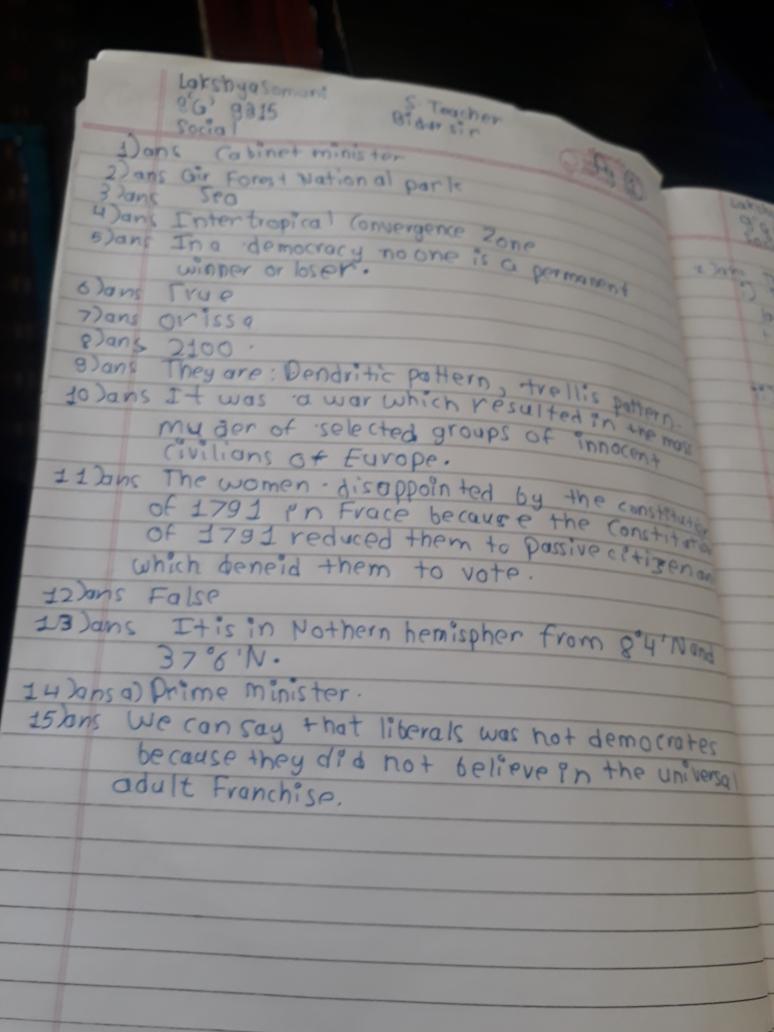 Lakshya Somani
9'G' 9215
S. Teacher
Social
Bidur sir
1) ans Cabinet minister
2) ans Gir Forest National park
3) ans Sea
4) ans Intertropical Convergence Zone
5) ans In a democracy no one is a permanent
winner or loser.
6) ans True
7) ans Orissa
8) ans 2100.
9) ans They are: Dendritic pattern, trellis pattern.
10) ans It was a war which resulted in the mass
muder of selected groups of innocent
civilians of Europe.
11) ans The women disappointed by the constitution
of 1791 in Frace because the Constitution
of 1791 reduced them to passive citizen
which deneid them to vote.
12) ans False
13) ans It is in Nothern hemispher from 8°4'N and
37°6'N.
14) ans a) Prime minister.
15) ans We can say that liberals was not democrates
because they did not believe in the universal
adult franchise.